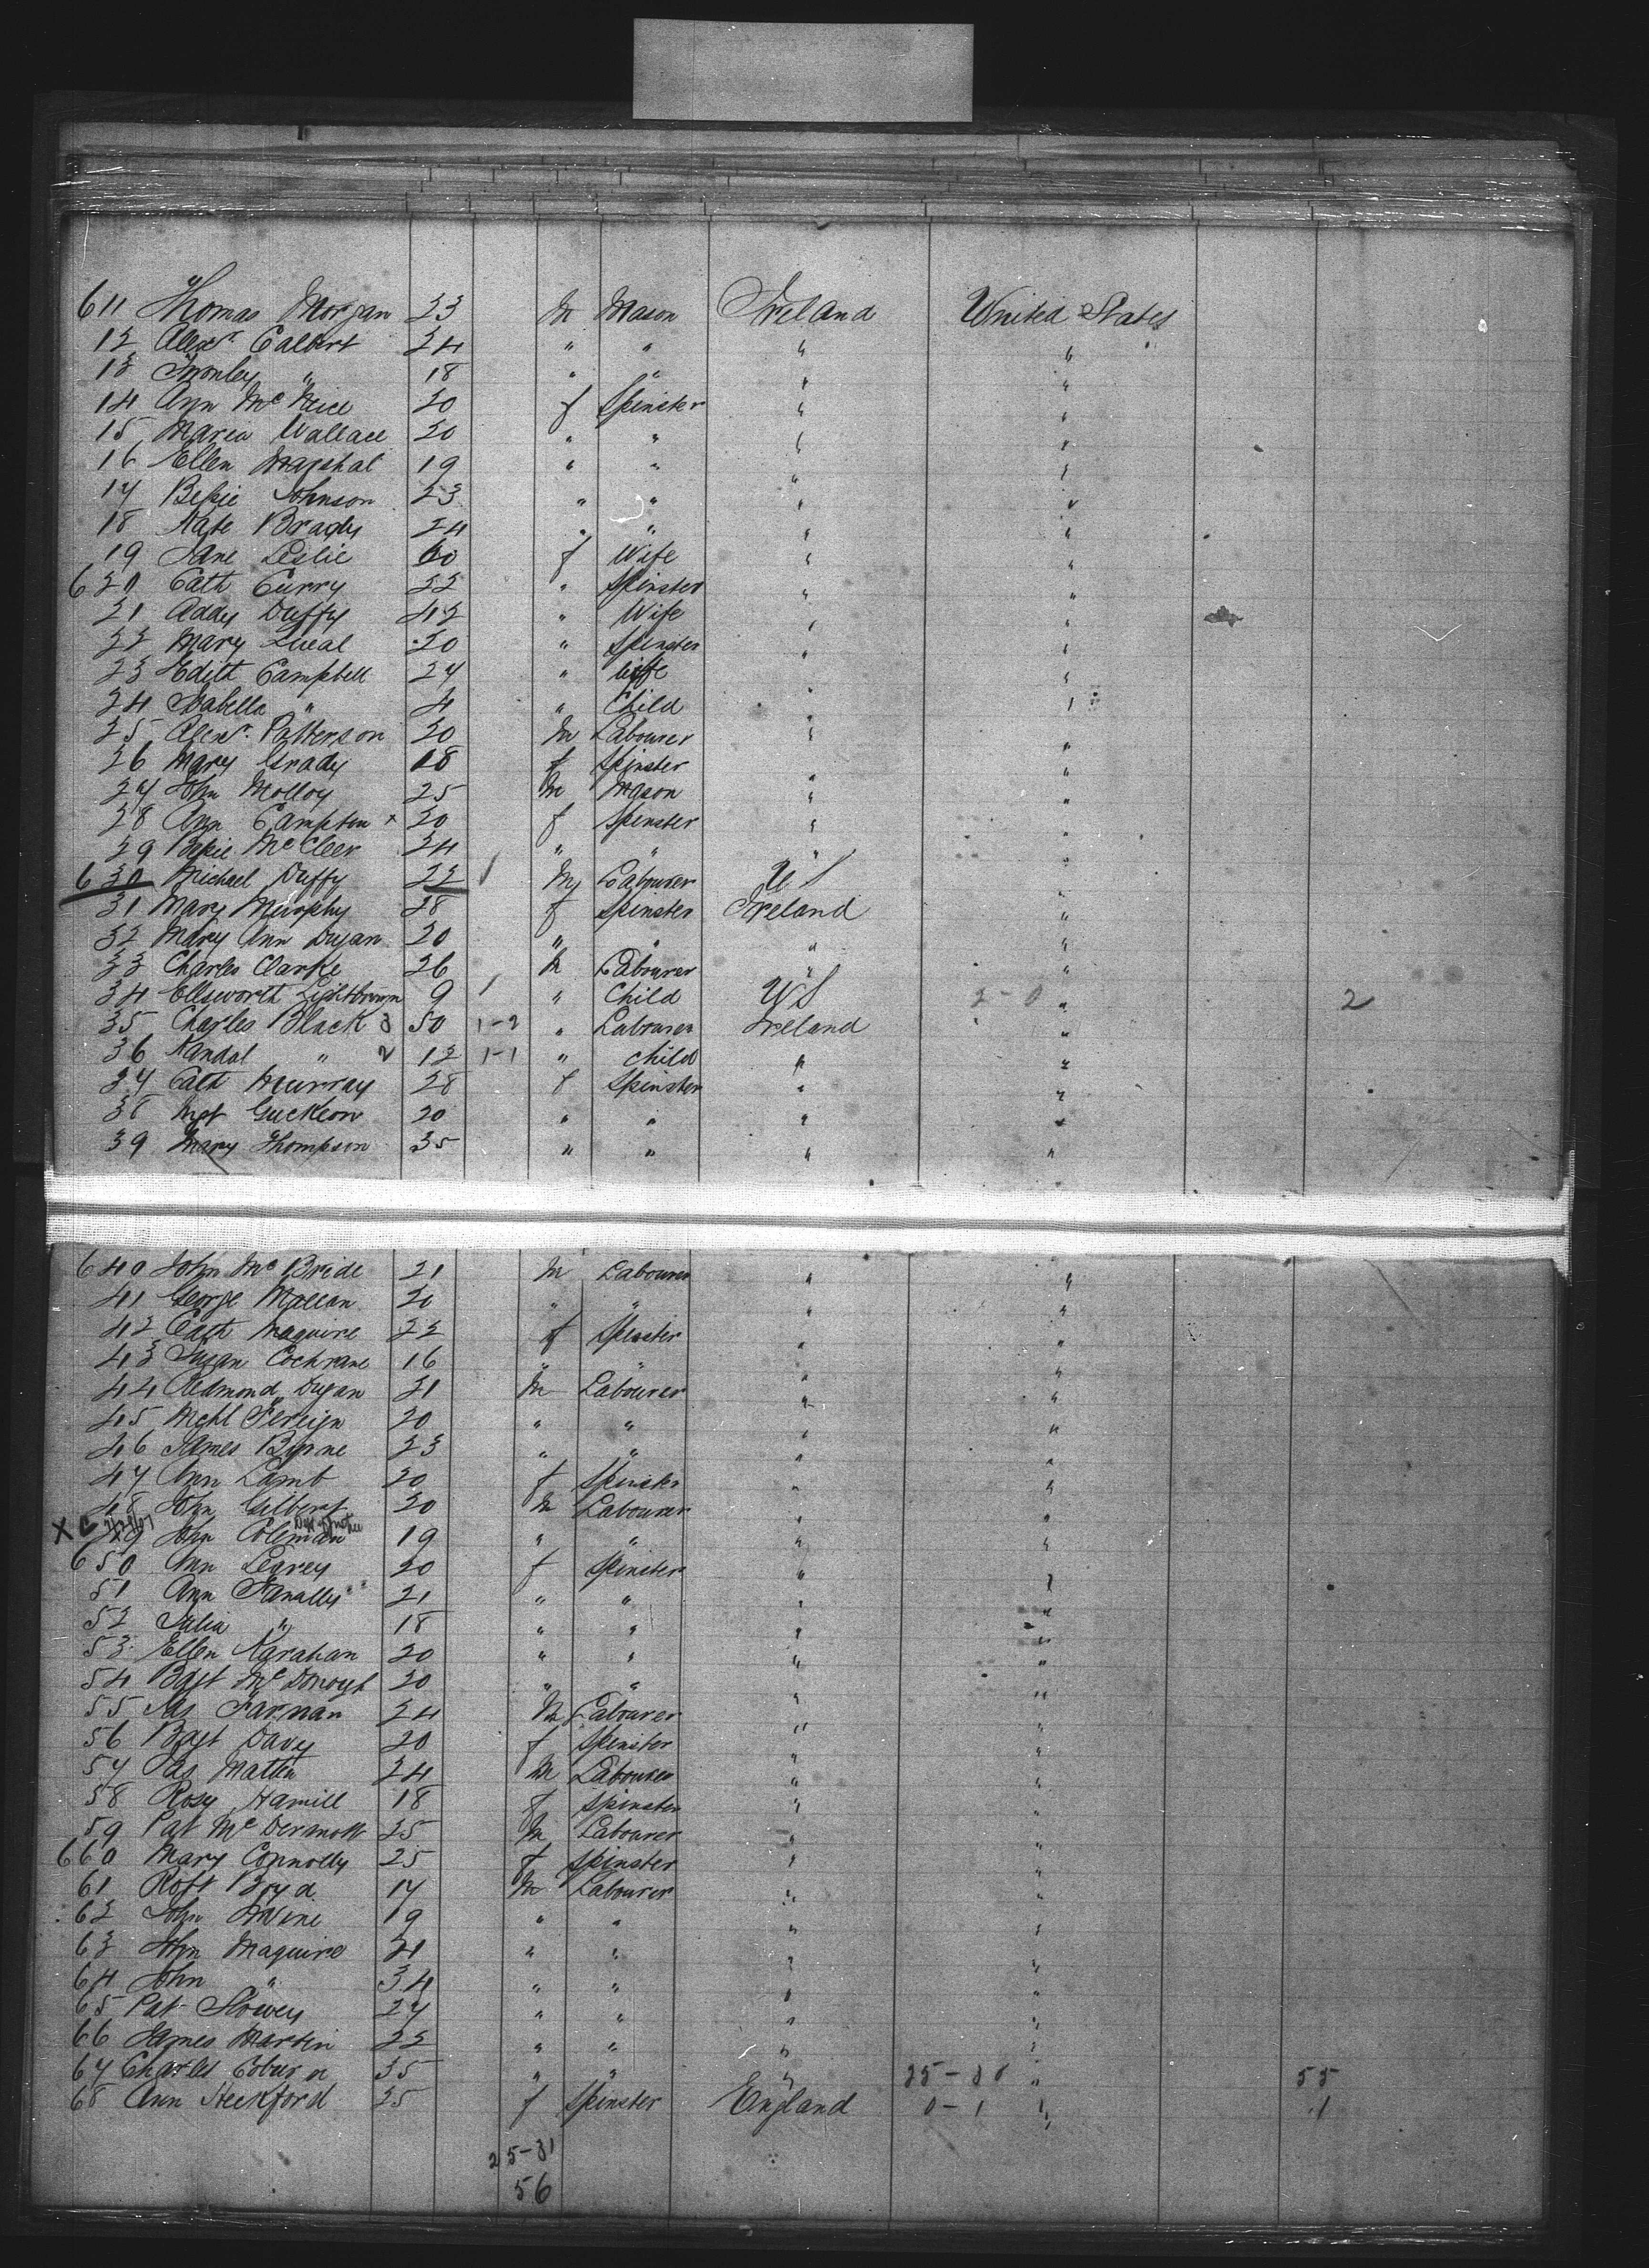 611 Thomas Morgan 23 M Mason Ireland United States
12 Alexr. Calbert 24 " " " "
13 " 18 " " " "
14 Ann McNeice 20 f Spinster " "
15 Maria Wallace 20 " " " "
16 Ellen Marshal 19 " " " "
17 Bessie Johnson 23 " " " "
18 Kate Brady 24 " " " "
19 Jane Leslie 60 f Wife " "
620 Cath Curry 22 " Spinster " "
21 Addy Duffy 42 " Wife " "
22 Mary 20 " Spinster " "
23 Edith Campbell 27 " Wife " "
24 Isabella " 4 " Child " "
25 Alexr. Patterson 20 M Labourer " "
26 Mary Grady 18 f Spinster " "
27 John Molloy 25 M Mason " "
28 Ann Campton x 20 f Spinster " "
29 Bessie McCleer 24 " " " "
630 Michael Duffy 22 / M Labourer US "
31 Mary Murphy 28 f Spinster Ireland "
32 Mary Ann Dugan 20 " " " "
33 Charles Clarke 26 M Labourer " "
34 Ellsworth Lightbrown 9 / " Child US 2-0 " 2
35 Charles Black 3 50 1-2 " Labourer Ireland "
36 Randal " 2 12 1-1 " Child " "
37 Cath Murray 28 f Spinster " "
38 Mgt Guckeon 20 " " " "
39 Mary Thompson 35 " " " "
640 John McBride 21 M Labourer " "
41 George 20 " " " "
42 Cath Maguire 22 f Spinster " "
43 Susan Cochrane 16 " " " "
44 Redmond Dugan 21 M Labourer " "
45 Mchl 20 " " " "
46 James Byrne 23 " " " "
47 Ann Lamb 20 f Spinster " "
48 John Gilbert 20 M Labourer " "
X C 49 John Coleman 19 " " " "
650 Ann Leavey 20 f Spinster " "
51 Ann Fanally 21 " " " "
52 Julia " 18 " " " "
53 Ellen Karahan 20 " " " "
54 McDonogh 20 " " " "
55 Jas Farnan 24 M Labourer " "
56 Davy 20 f Spinster " "
57 24 M Labourer " "
58 Rosy Hamill 18 f Spinster " "
59 Pat McDermott 25 M Labourer " "
660 Mary Connolly 25 f Spinster " "
61 Robt Boyd 17 M Labourer " "
62 John Irvine 19 " " " "
63 John Maguire 21 " " " "
64 John " 34 " " " "
65 Pat Slowey 27 " " " "
66 James Martin 22 " " " "
67 Charles Coburn 35 " " " 25-30 " 55
68 Ann Heckford 25 f Spinster England 0-1 " 1
25-31
56